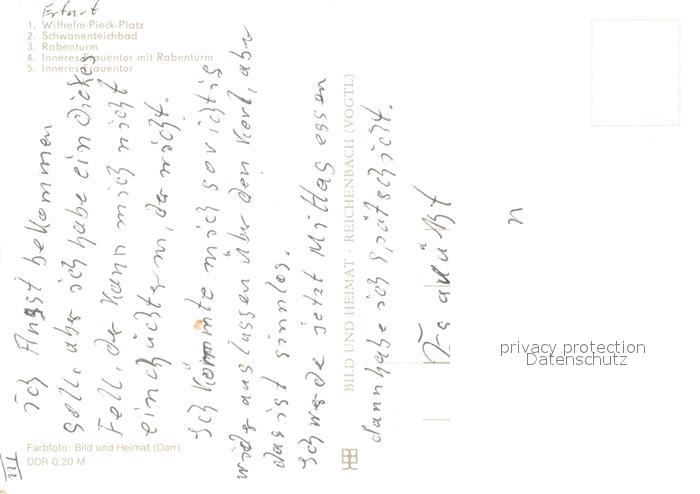 Erfurt
1. Wilhelm-Pieck-Platz
2. Schwanenteichbad
3. Rabenturm
4. Inneres Frauentor mit Rabenturm
5. Inneres Frauentor
III
ich Angst bekommen
soll, aber ich habe ein dickes
Fell, der kann mich nicht
einschüchtern, der nicht.
Ich könnte mich so richtig
wieder auslassen über den Kerl, aber
das ist sinnlos.
Ich werde jetzt Mittag essen
dann habe ich Spätschicht.
Es grüßt
n
BILD UND HEIMAT · REICHENBACH (VOGTL)
Farbfoto: Bild und Heimat (Darr)
DDR 0,20 M
privacy protection
Datenschutz